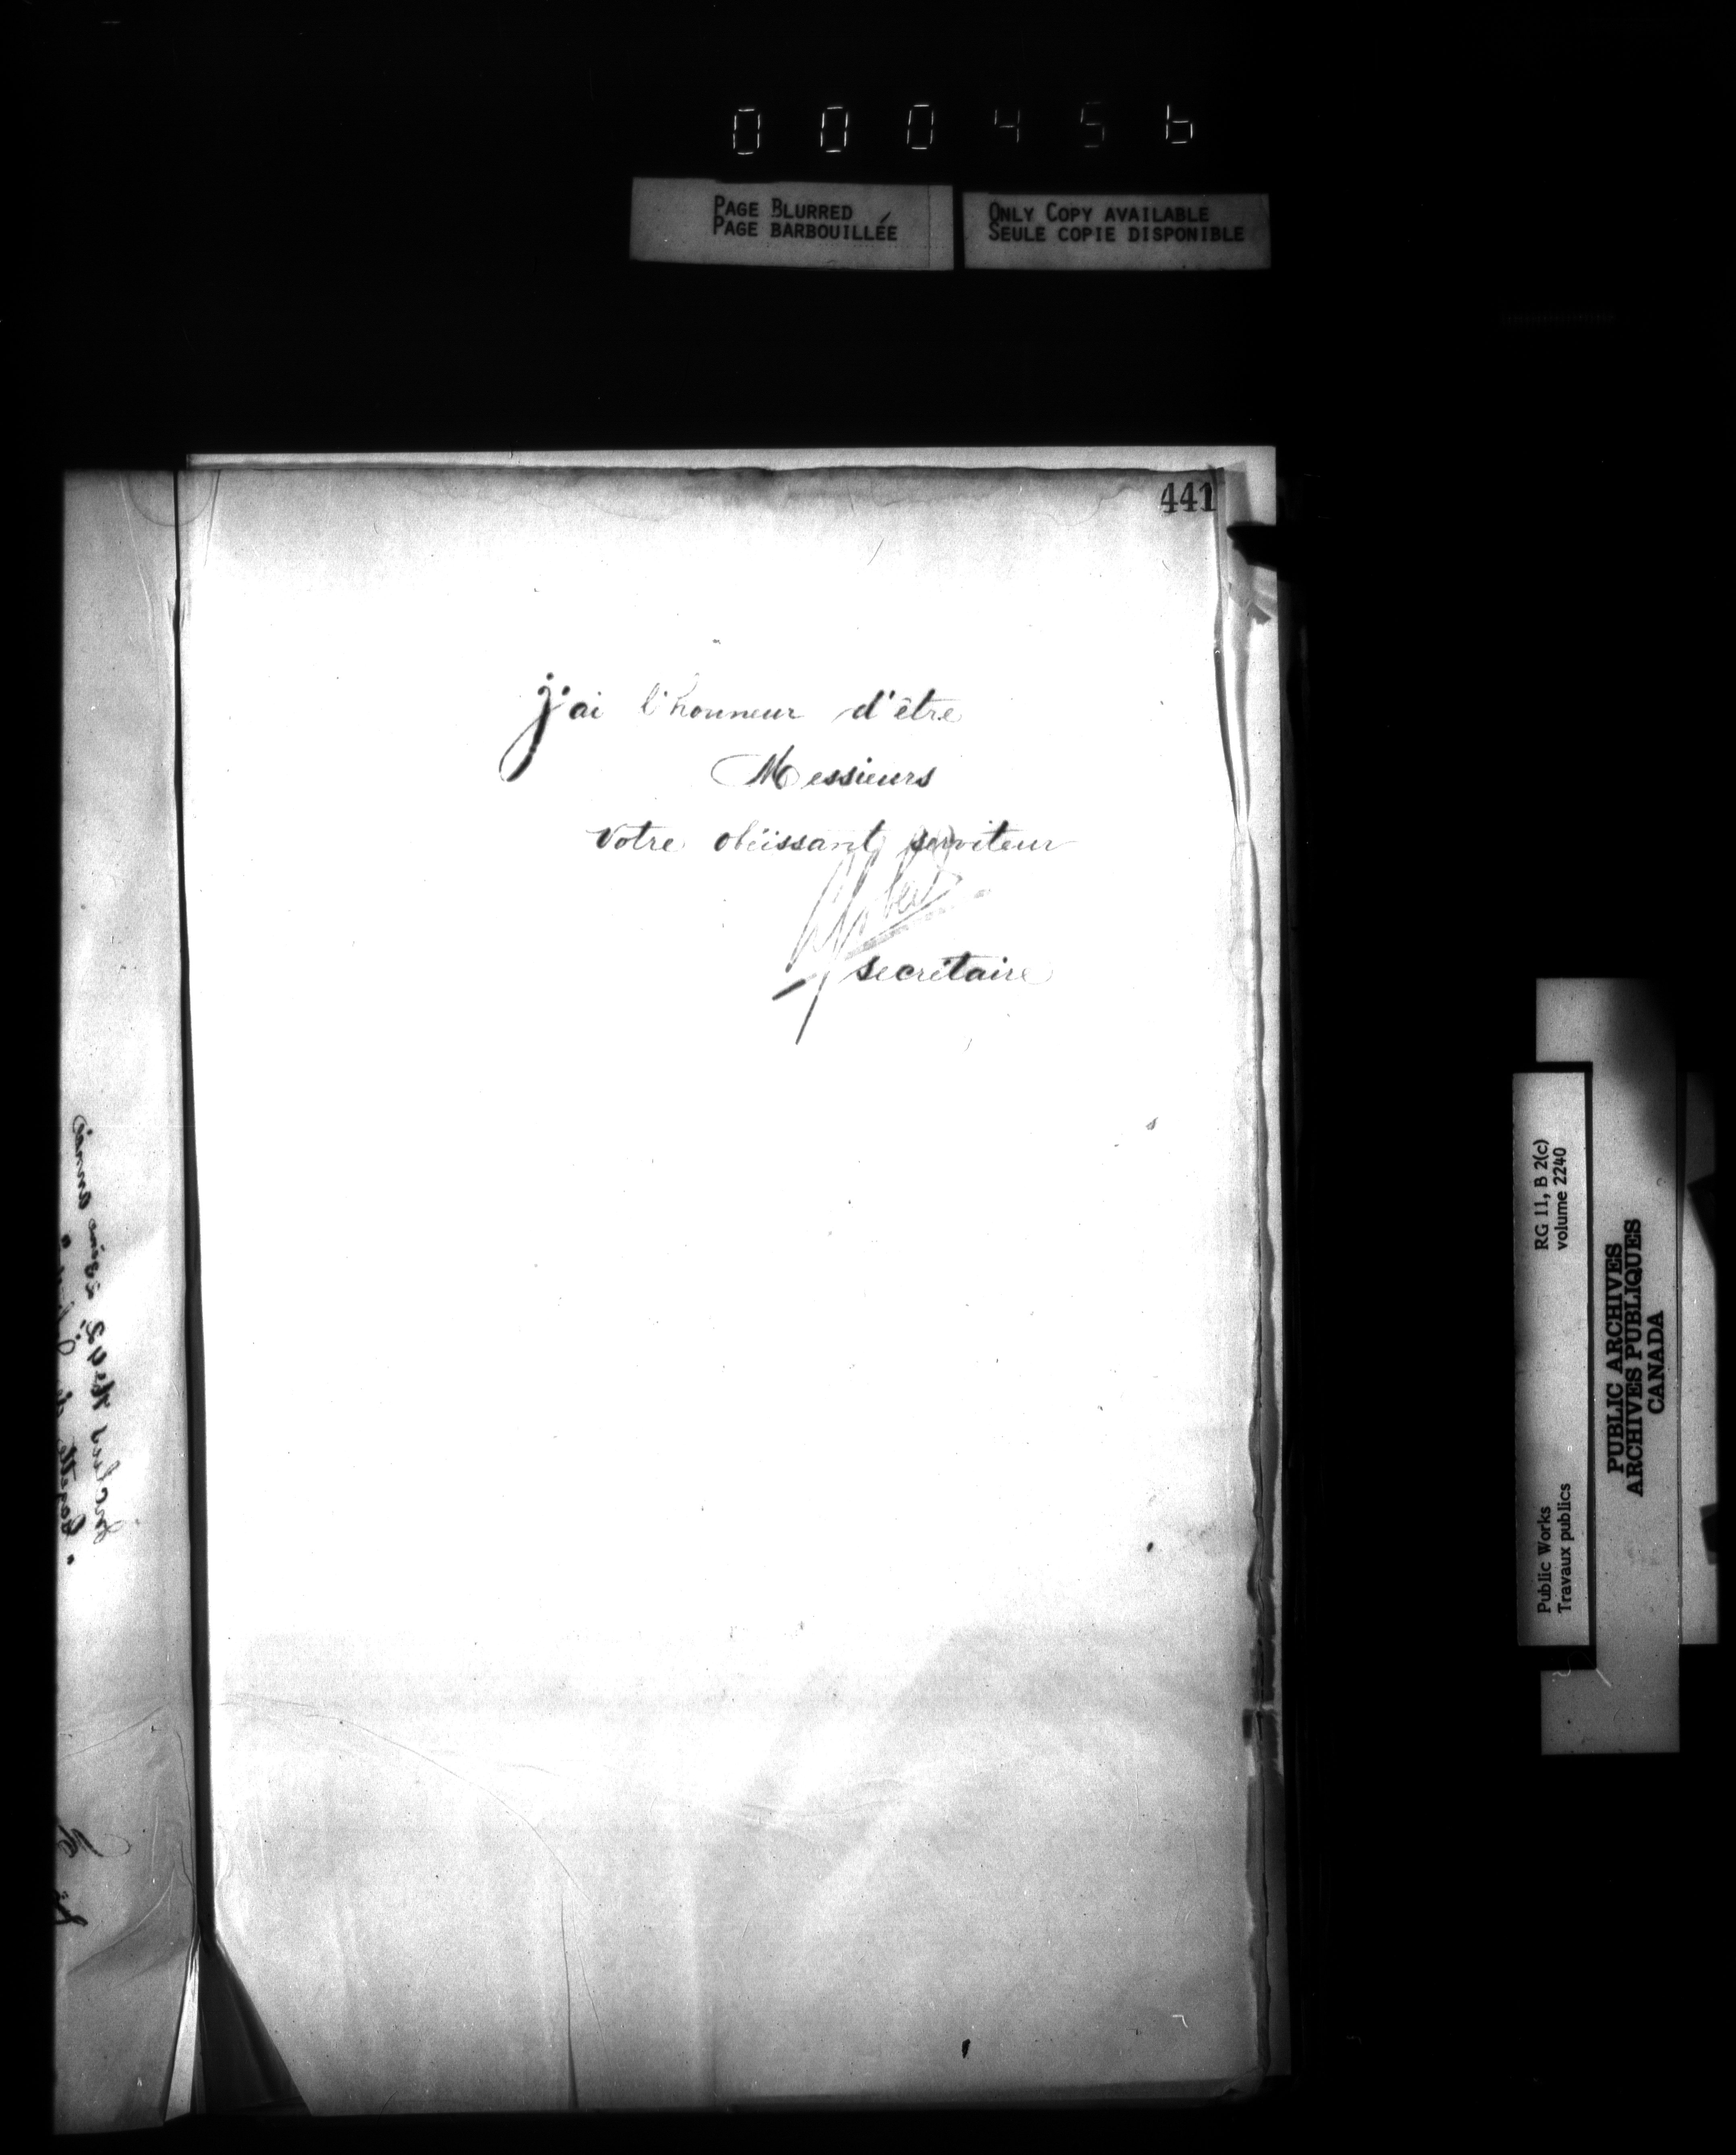 000456
PAGE BLURRED
PAGE BARBOUILLÉE
ONLY COPY AVAILABLE
SEULE COPIE DISPONIBLE
441
j'ai l'honneur d'être
Messieurs
votre obéissant serviteur
secrétaire
RG 11, B 2(c)
volume 2240
Public Works
Travaux publics
PUBLIC ARCHIVES
ARCHIVES PUBLIQUES
CANADA